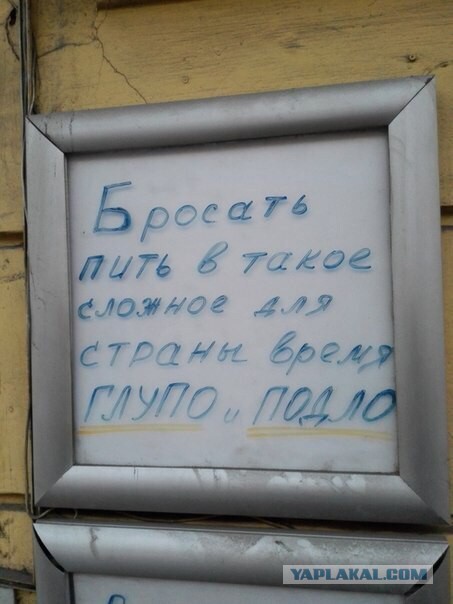 Бросать
пить в такое
сложное для
страны время
ГЛУПО и ПОДЛО
YAPLAKAL.COM